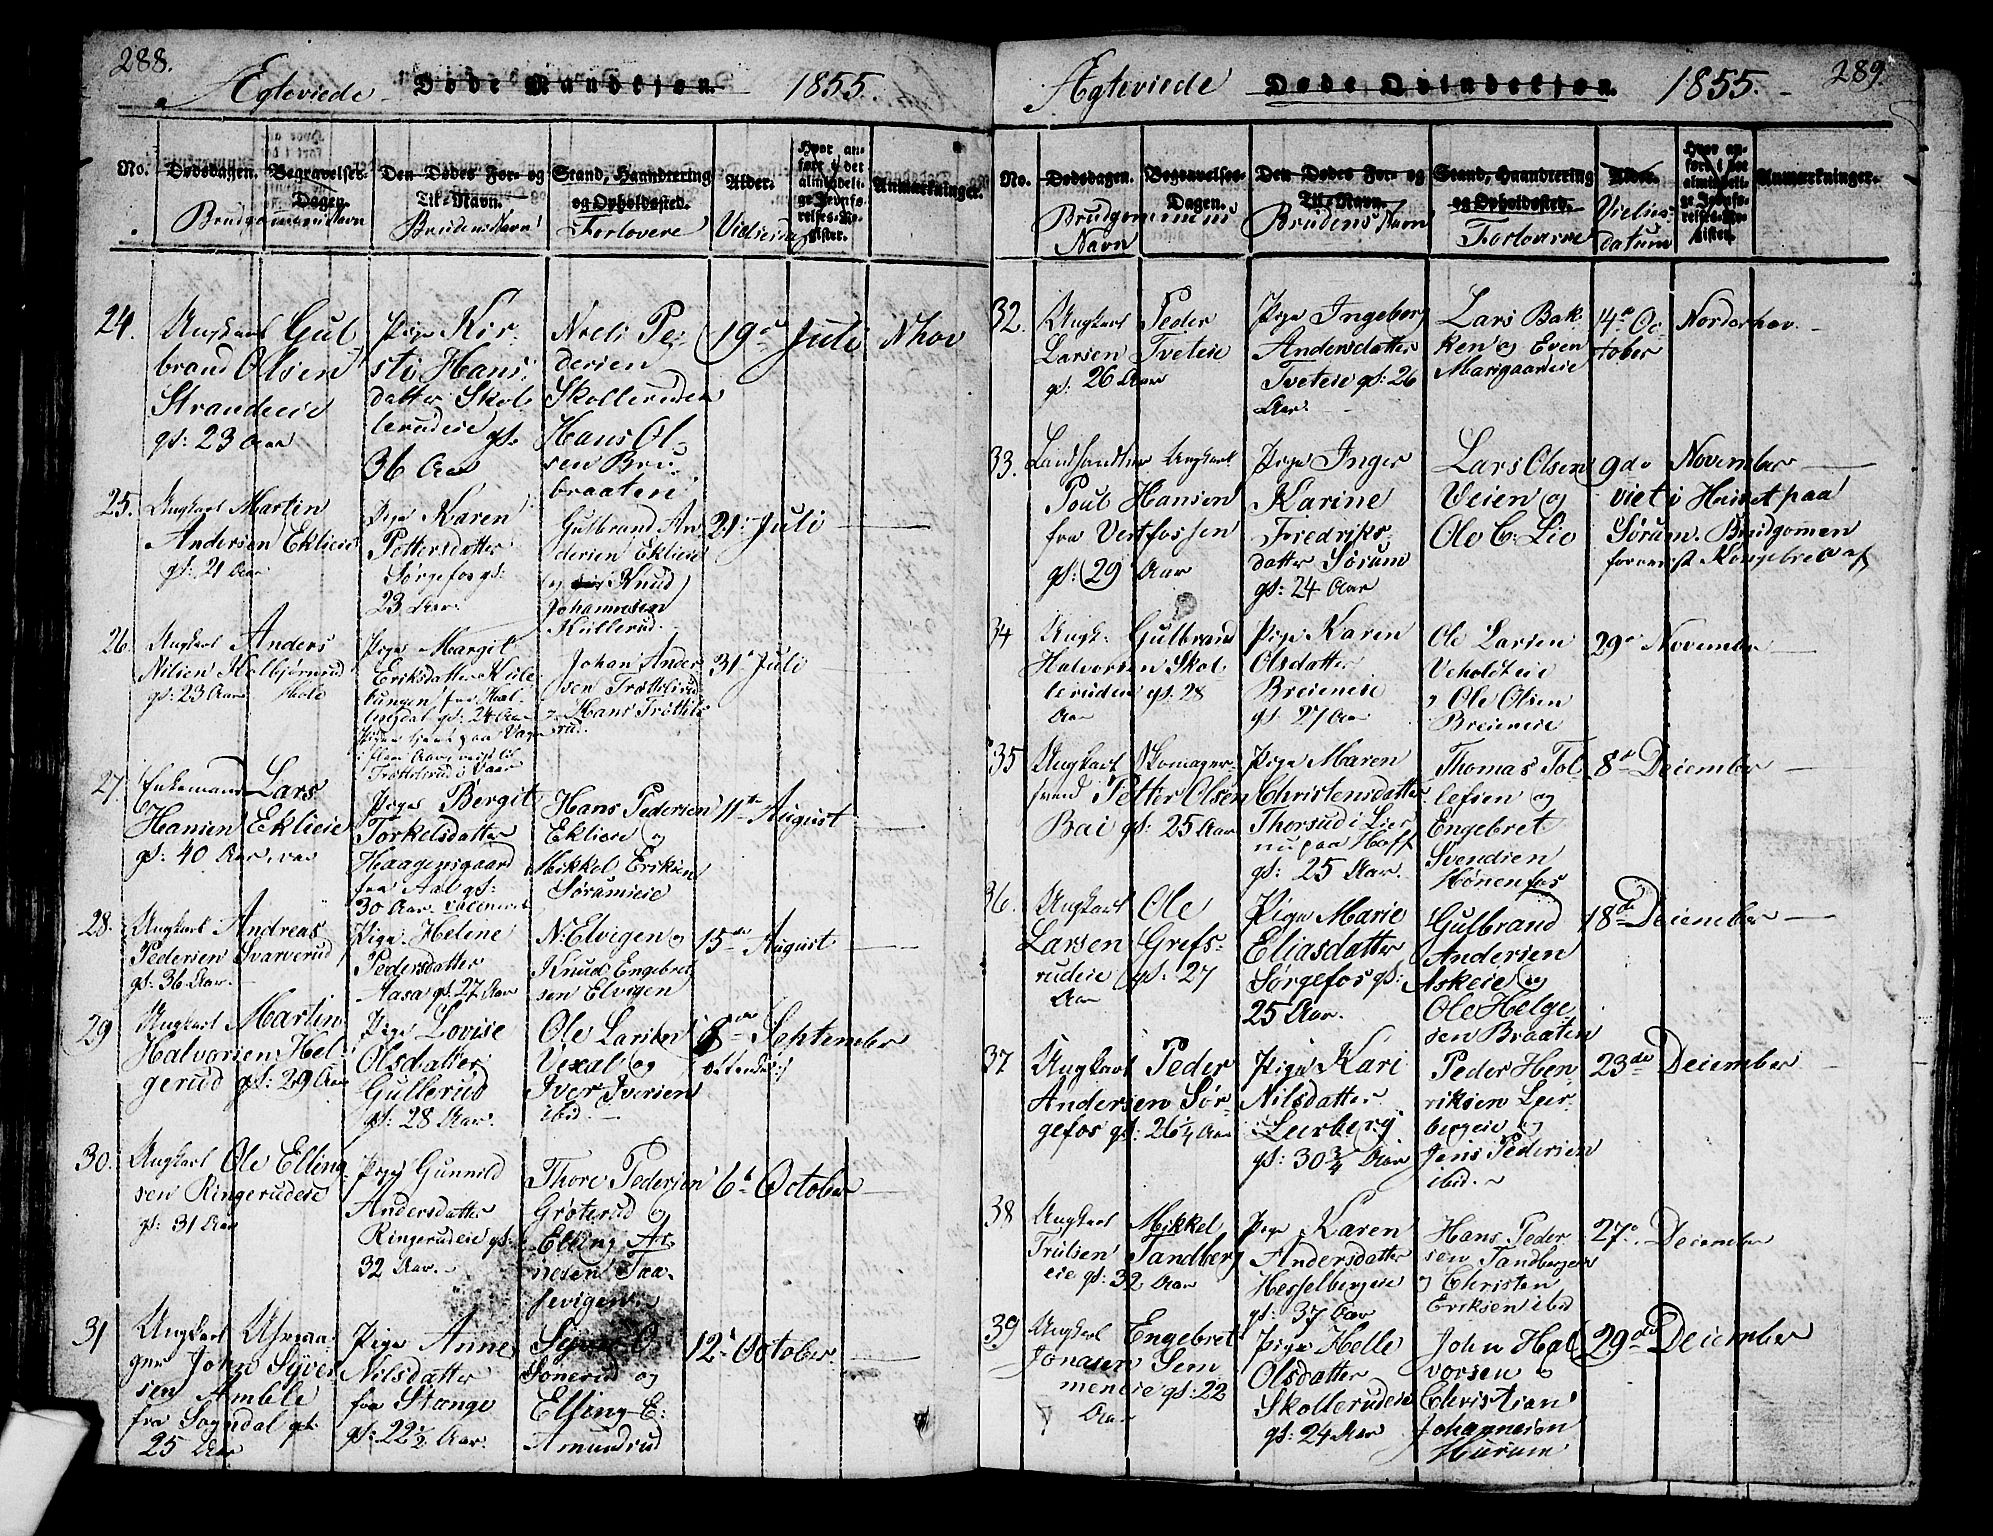 288.
Ægteviede Døde Mandkjøn. 1855.
No.
Dødsdagen.
Begravelses-
Dagen.
Den Dødes For- og
Til-Navn.
Stand, Haandtering
og Opholdssted.
Alder.
Hvor an-
ført i det
almindeli-
ge Jevnfø-
relses-Re-
gister.
Anmærkninger.
Brudgommens Navn
Brudens Navn
Forlovere
24.
Ungkarl Gul
brand Olsen
Strandeie
gl: 23 Aar
Pige Kir
sti Hans
datter Skol
lerudeie gl:
36 Aar
Niels Pe
dersen
Skollerudeie
Hans Ol-
sen Bru
braaten
19de Juli
Nhov
25.
Ungkarl Martin
Andersen Eklieie
gl: 21 Aar
Pige Karen
Pettersdatter
Sørgefos gl:
23 Aar.
Gulbrand An
dersen Eklieie
og Knud
Johannesen
Hullerud.
21. Juli
26.
Ungkarl Anders
Nilsen
gl: 23 Aar
Pige Margit
Eriksdatter
fra Hal
lingdal gl: 24 Aar
Johan Ander
sen Trøttelsrud
Hans Trøttels
rud.
31. Juli
27.
Enkemand Lars
Hansen Eklieie
gl: 40 Aar, var
Pige Bergit
Torkelsdatter
Haagensgaard
fra Aal gl:
30 Aar. vaccineret
Hans Pedersen
Eklieie og
Mikkel Eriksen
Sørumeie
11te August
28.
Ungkarl Andreas
Pedersen Svarverud
gl: 36 Aar.
Pige Helene
Pedersdatter
Aasa gl: 27 Aar
N: Elvigen og
Knud Engebret
sen Elvigen
15de August
29
Ungkarl Martin
Halvorsen Hel-
gerud gl: 29 Aar
Pige Lovise
Olsdatter
Gullerud
gl: 28 Aar.
Ole Larsen
Vexal og
Iver Iversen
ibid
8de September
30.
Ungkarl Ole Elling
sen Ringerudeie
gl: 31 Aar
Pige Gunnild
Andersdatter
Ringerudeie gl:
32 Aar.
Thore Pedersen
Grøterud og
Elling Ar
nesen Taa-
jevigen
6. October
31
Ungkarl Uhrmaa-
ger John Syver
sen Amble
fra Sogndal gl:
25 Aar
Pige Anne
Nilsdatter
fra Stange
gl: 22½ Aar.
Syver O
Sonerud og
Elling E:
Amundrud
12. October.
289.
Ægteviede Døde Qvindekjøn. 1855.
No.
Dødsdagen.
Begravelses-
Dagen.
Den Dødes For- og
Til-Navn.
Stand, Haandtering
og Opholdssted.
Alder.
Hvor an-
ført i det
almindeli-
ge Jevnfø-
relses-Re-
gister.
Anmærkninger.
Brudgommens
Navn
Brudens Navn
Forlovere
Vielses-
datum
32.
Ungkarl Peder
Larsen Tveteie
gl: 26 Aar
Pige Ingeborg
Andersdatter
Tveteie gl: 26
Aar.
Lars Bak
ken og Even
Marigaardeie
14de Oc
tober
Norderhov
33.
Landhandler Ungkarl
Poul Hansen
fra Vestfossen
gl: 29 Aar
Pige Inger
Karine
Fredriks
datter Sørum
gl: 24 Aar
Lars Olsen
Veien og
Ole C. Lie
9de November
viet i Huset paa
Sørum. Brudgomen
foreviist Kongebrev af
34
Ungk: Gulbrand
Halvorsen Skol
lerudeie gl: 28
Aar
Pige Karen
Olsdatter
Breieneie
gl: 27 Aar
Ole Larsen
Veholdteie
Ole Olsen
Breieneie
29. November
35
Ungkarl Skomager
svend Petter Olsen
Bai gl: 25 Aar
Pige Maren
Christensdatter
Thorsrud i Lier
nu paa Hoff
gl: 25 Aar.
Thomas Tol
lefsen og
Engebret
Svendsen
Hønenfos
8de December
36.
Ungkarl Ole
Larsen Grefs-
rudeie gl: 27
Aar
Pige Marie
Eliasdatter
Sørgefos gl:
25 Aar.
Gulbrand
Andersen
Askeie og
Ole Helge
sen Braaten
18de December
37
Ungkarl Peder
Andersen Sør-
gefos gl: 26¼ Aar
Pige Kari
Nilsdatter
Leerberg
gl: 30¾ Aar
Peder Hen
riksen Leer-
bergeie og
Jens Pedersen
ibid.
23de December
38
Ungkarl Mikkel
Trulsen Tandberg
eie gl: 32 Aar
Pige Karen
Andersdatter
Hesselbergeie
gl: 37 Aar
Hans Peder
sen Tandbergeie
og Christen
Eriksen ibid
27. December
39
Ungkarl Engebret
Jonasen Sem
meneie gl: 22
Aar
Pige Helle
Olsdatter
Skollerudeie
gl: 24 Aar
John Hal
vorsen og
Christian
Johannesen
Hurum
29de December